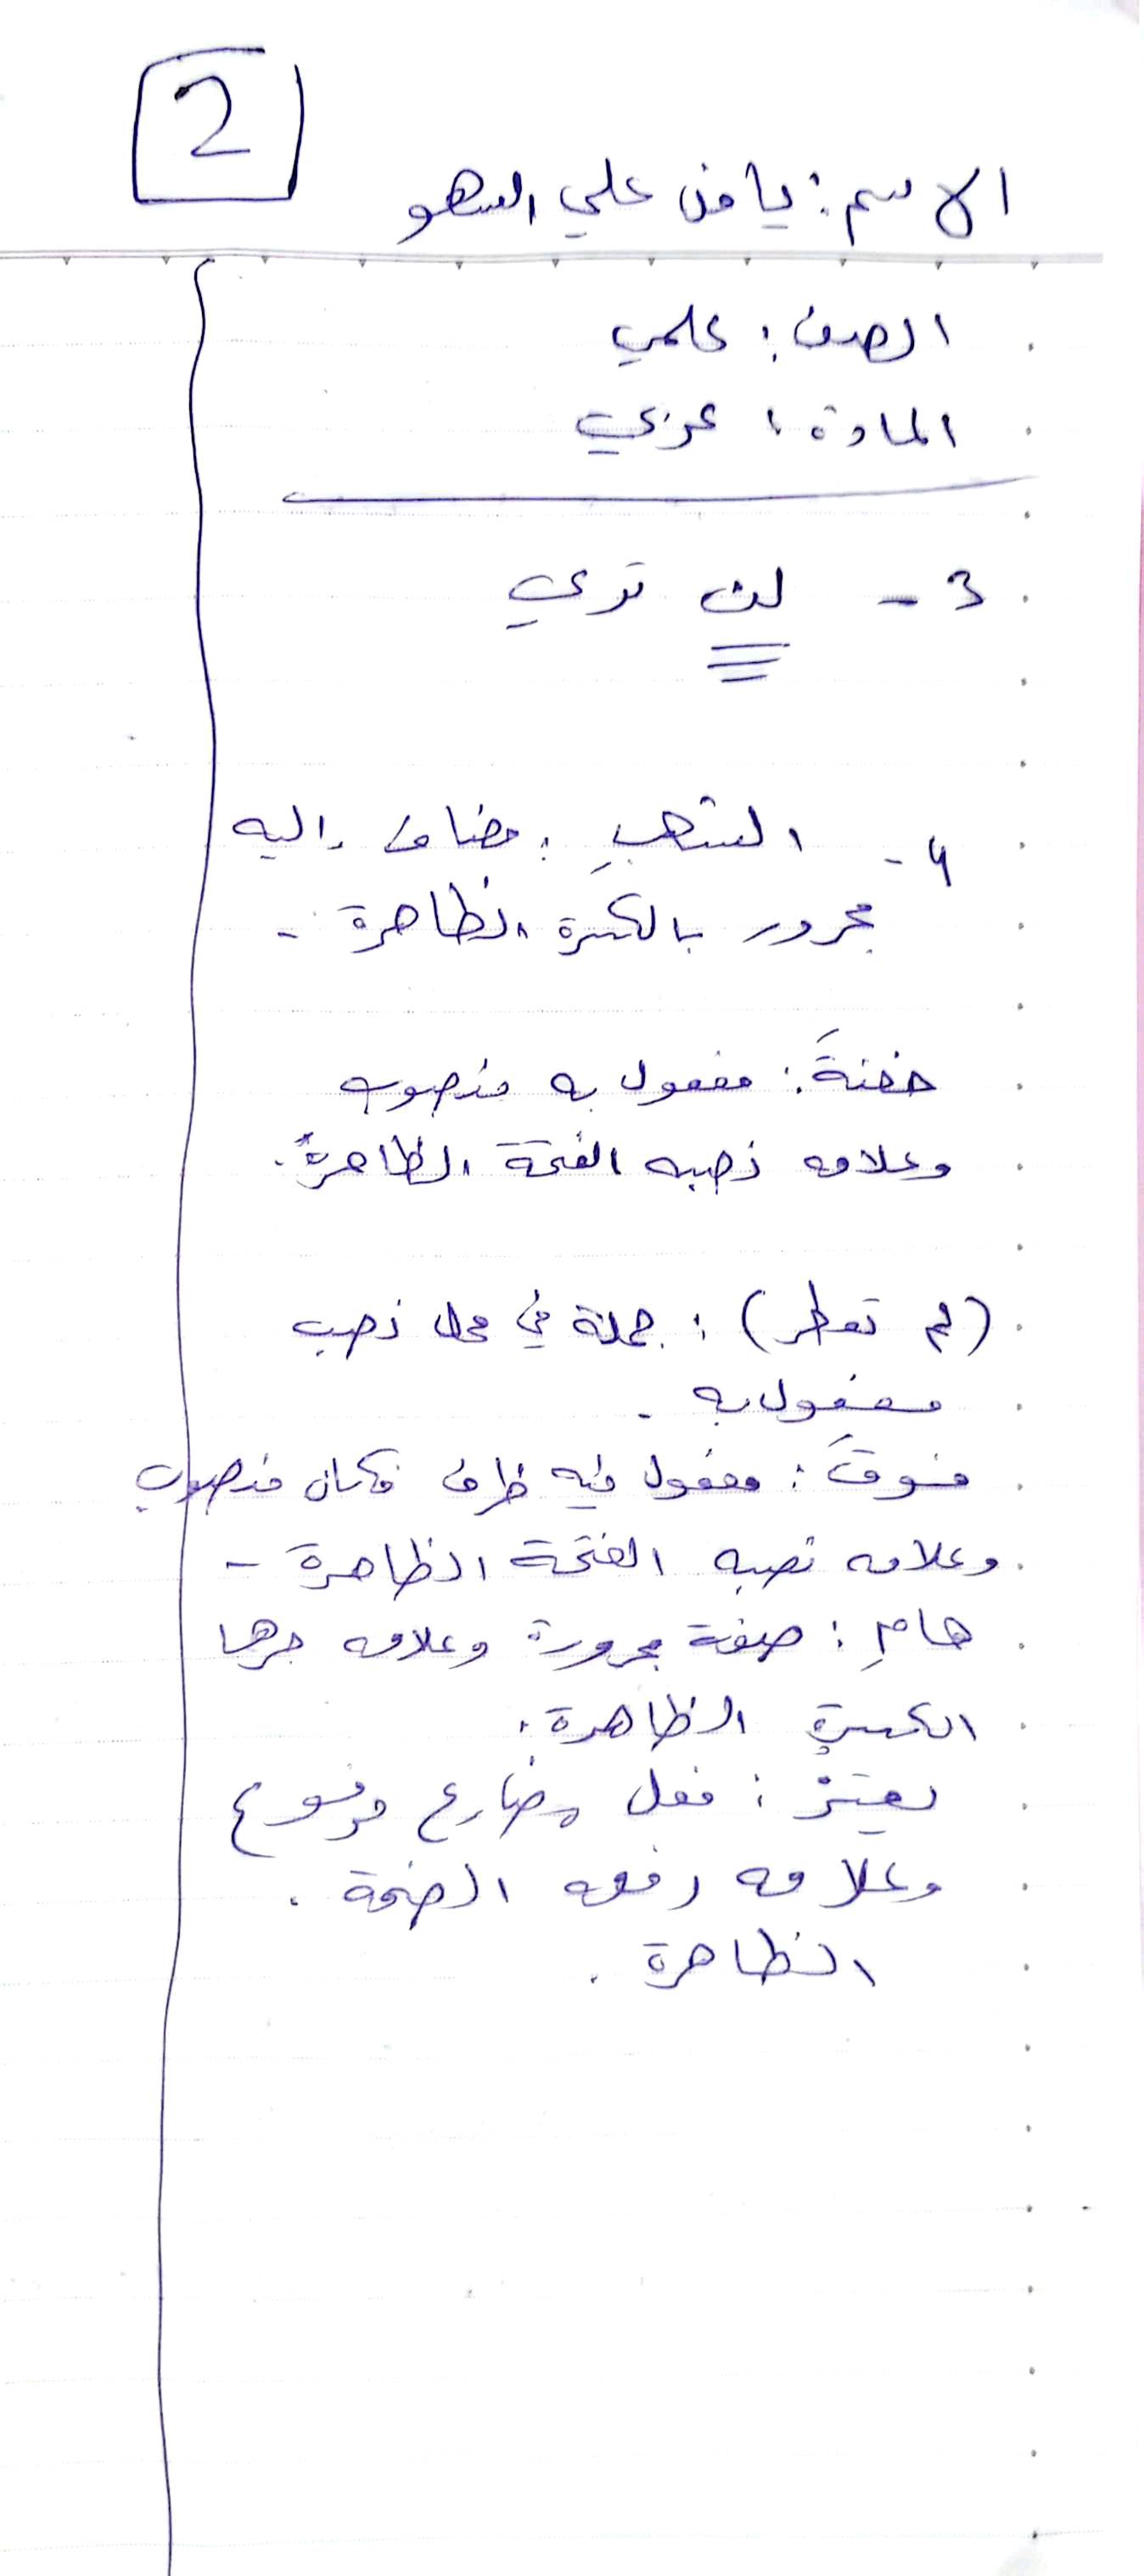 2
الاسم: يامن علي السهو
الصف: علمي
المادة: عربي
3 - لن تري
4 - الشهبِ: مضاف إليه
مجرور بالكسرة الظاهرة -
حفنةَ: مفعول به منصوب
وعلامه نصبه الفتحة الظاهرة.
(لم تمطر): جملة في محل نصب
مفعول به -
فوقَ: مفعول فيه ظرف مكان منصوب
وعلامه نصبه الفتحة الظاهرة -
هامِ: صفة مجرورة وعلامه جرها
الكسرة الظاهرة.
يهتزُ: فعل مضارع مرفوع
وعلامه رفعه الضمة.
الظاهرة.